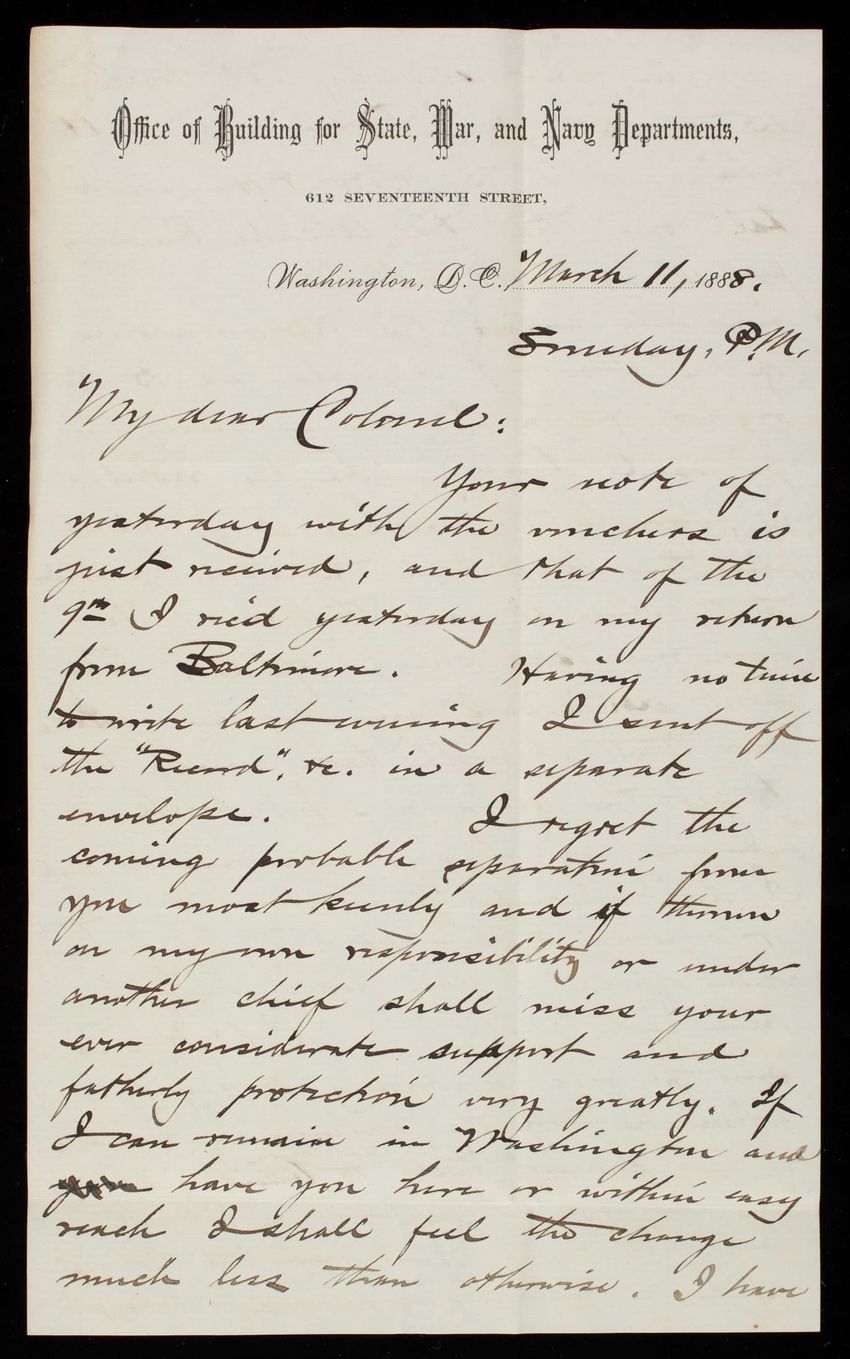 Office of Building for State, War, and Navy Departments,
612 SEVENTEENTH STREET,
Washington, D. C. March 11, 1888.
Sunday, P.M.
My dear Colonel:
Your note of
yesterday with the vouchers is
just received, and that of the
9th I rec'd yesterday on my return
from Baltimore. Having no time
to write last evening I sent off
the "Record", &c. in a separate
envelope. I regret the
coming probable separation from
you most keenly and if thrown
on my own responsibility or under
another chief shall miss your
ever considerate support and
fatherly protection very greatly. If
I can remain in Washington and
have you here or within easy
reach I shall feel the change
much less than otherwise. I have